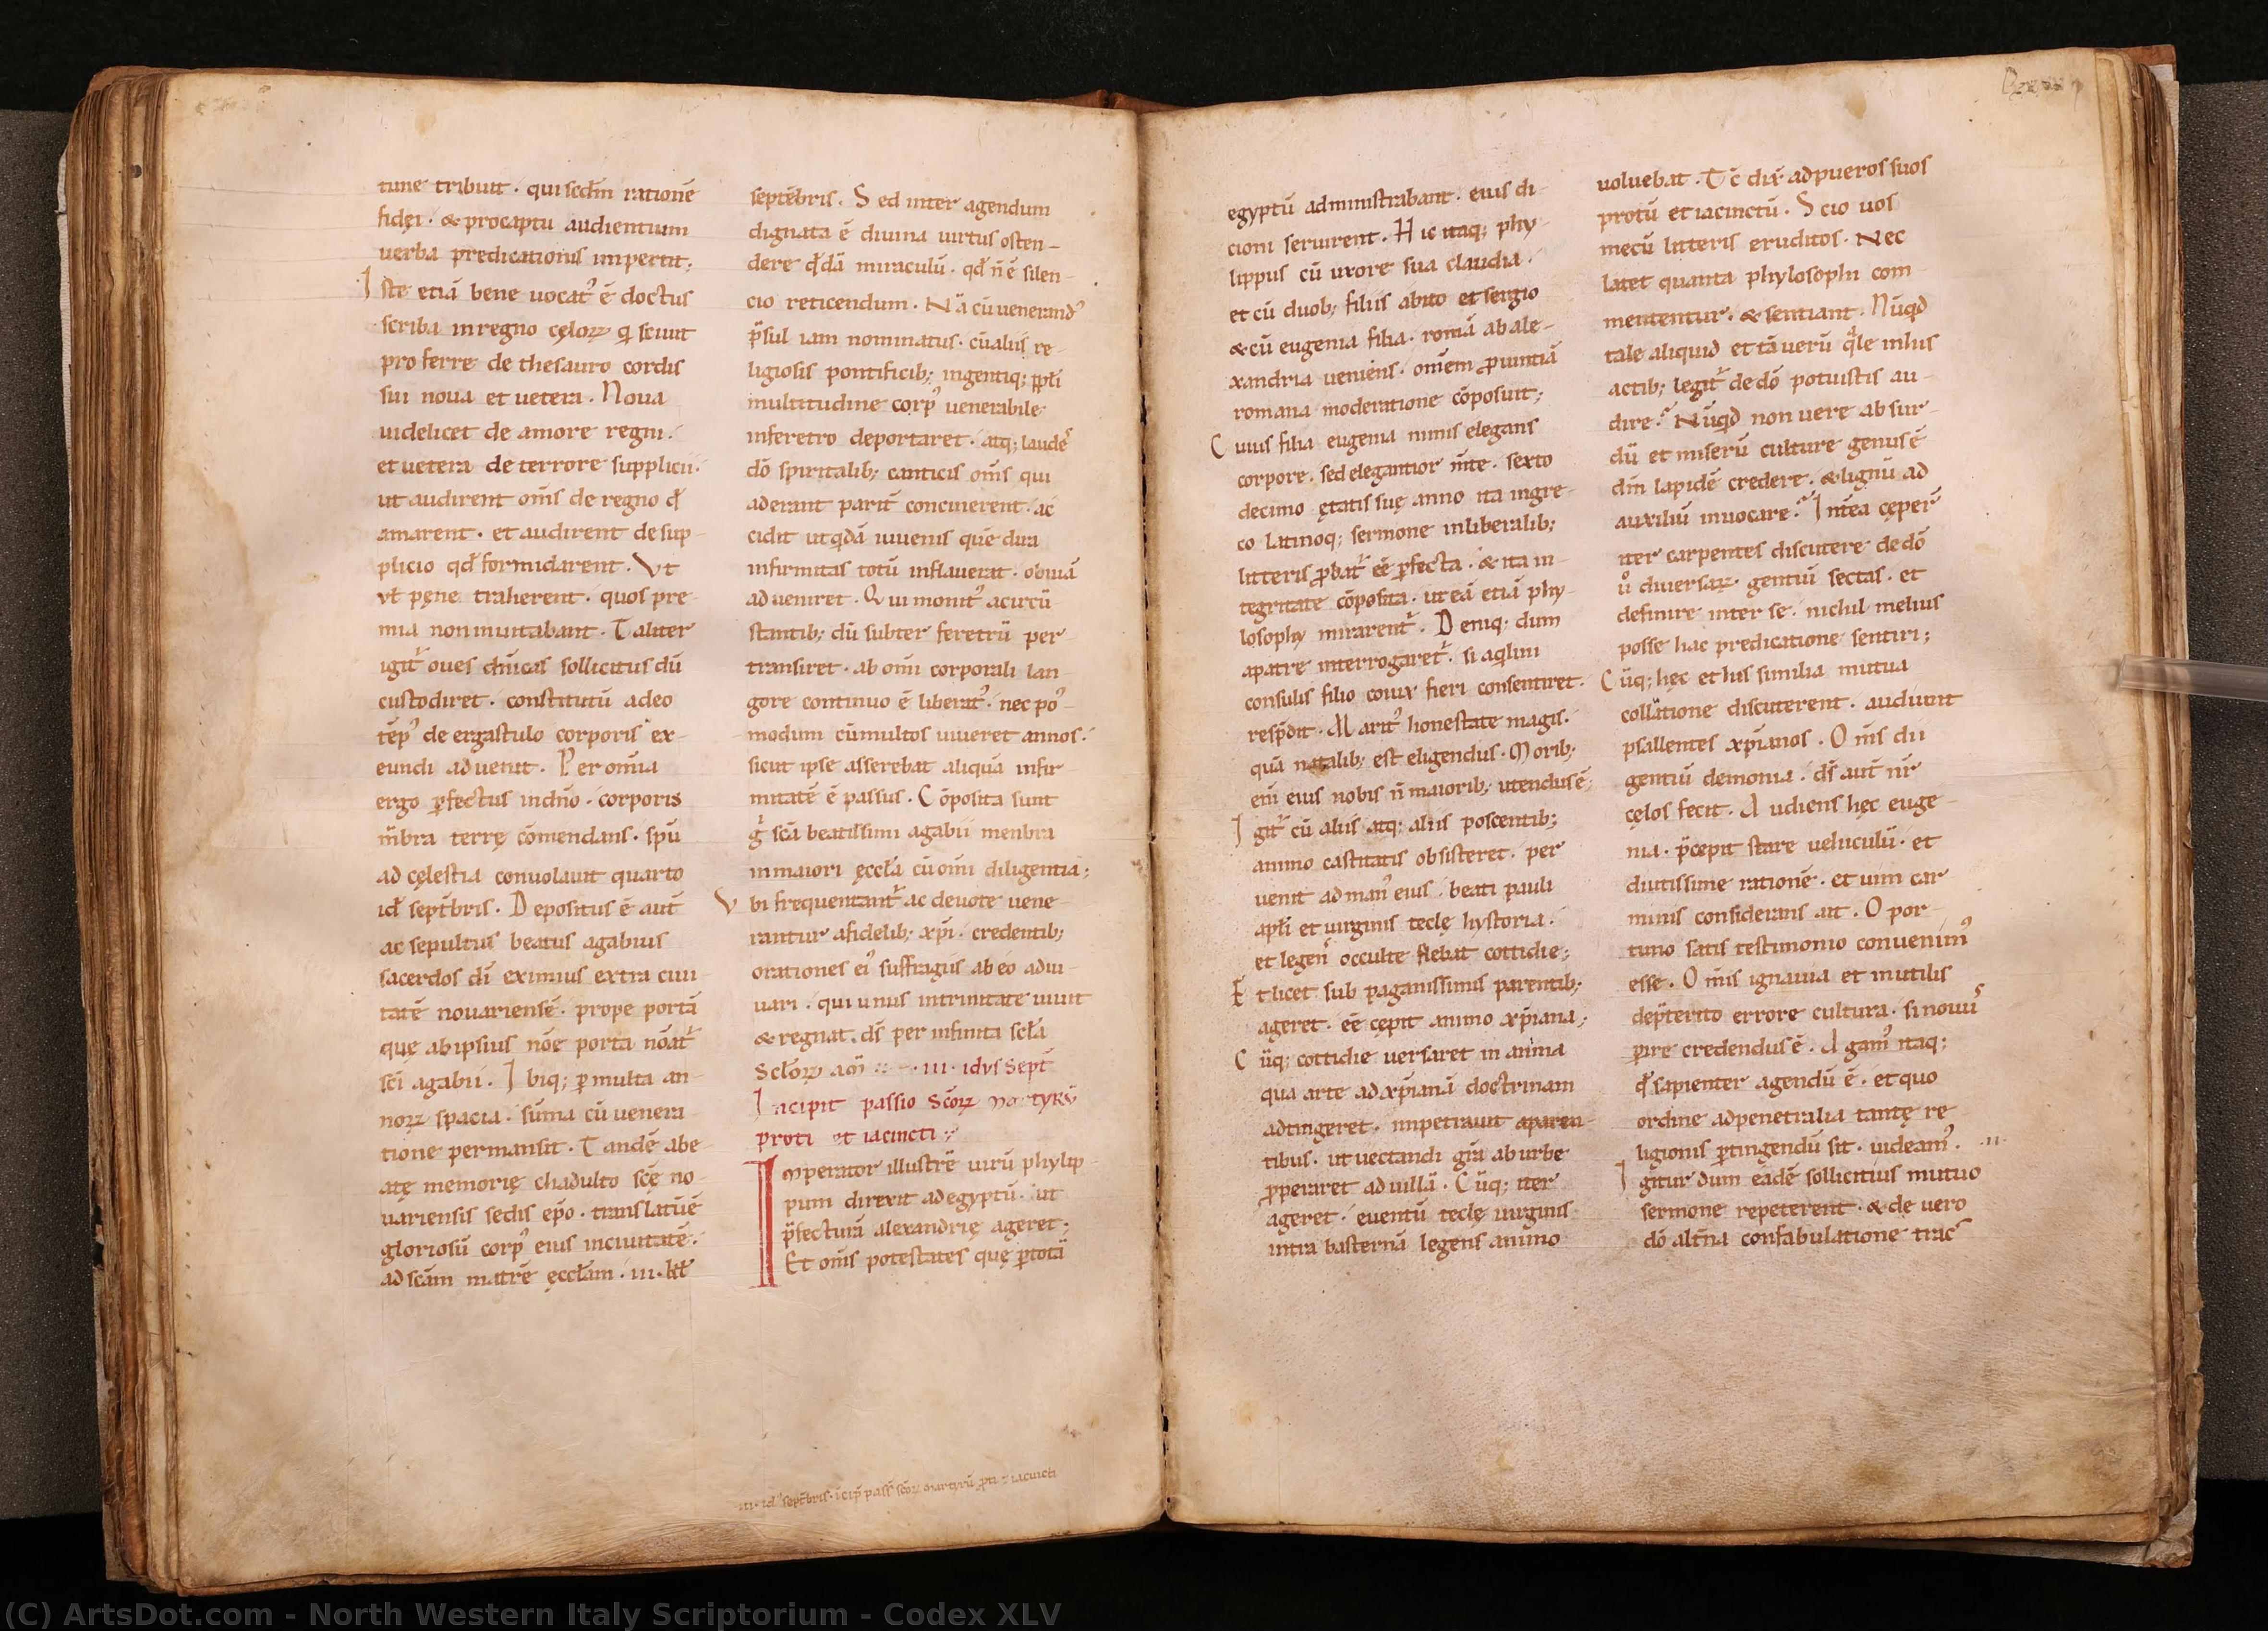 tune tribuit · qui scdm̄ rationē
fidęi · & pro captu audientium
uerba predicationis impertit;
Iste etiā bene uocat᷒ ē doctus
scriba in regno cęloꝝ q̇ sciuit
pro ferre de thesauro cordis
sui noua et uetera · Noua
uidelicet de amore regni ·
et uetera de terrore supplicii ·
ut audirent om̄s de regno qđ
amarent · et audirent de sup-
plicio qđ formidarent · Vt
uł pęne traherent · quos pre-
mia non inuitabant · Taliter
igit᷒ oues dn̄icas sollicitus dū
custodiret · constitutū adeo
tēp᷒ de ergastulo corporis ex-
eundi aduenit · Per om̄ia
ergo ꝑfectus indn̄o · corporis
m̄bra terrę cōmendans · sp̄u
ad cęlestia conuolauit quarto
idꝰ septēbris · Depositus ē aut̄
ac sepultus beatus agabius
sacerdos dī eximius extra ciui
tatē nouariensē · prope portā
quę ab ipsius nōe porta nōat᷒
sc̄i agabii · Ibiq; ꝑ multa an-
noꝝ spacia · sūma cū uenera
tione permansit · Tandē abe
atę memorię chadulto sc̄ę no-
uariensis sedis ep̄o · translatūē
gloriosū corp᷒ eius inciuitatē ·
ad sc̄am matrē ęccłam · iii · kł
septēbris · Sed inter agendum
dignata ē diuina uirtus osten-
dere q̇dā miraculū · qđ n̄ ē silen-
cio reticendum · Nā cū uenerand᷒
p̄sul iam nominatus · cū aliis re-
ligiosis pontificib; ingentiq; ppłi
multitudine corp᷒ uenerabile
inferetro deportaret · atq; laudes
dō spiritalib; canticis om̄s qui
aderant parit̄ concinerent · ac
cidit ut q̇dā iuuenis quē dira
infirmitas totū inflauerat · obuiā
adueniret · Qui monit᷒ acircū
stantib; dū subter feretrū per
transiret · ab om̄i corporali lan-
gore continuo ē liberat᷒ · nec pō-
modum cū multos uiueret annos ·
sicut ipse asserebat aliquā infir
mitatē ē passus · Cōposita sunt
g̊ scā beatissimi agabii menbra
in maiori ęccła cū om̄i diligentia;
Vbi frequentant᷒ ac deuote uene-
rantur afidelib; xp̄i · credentib;
orationes ei᷒ suffragiis ab eo adiu-
uari · qui unus intrinitate uiuit
& regnat · ds̄ per infinita scła
scłoꝝ am̄ · iii · idvs Sept̄
Incipit passio Scōꝝ martyrū
proti et iacincti
Imperator illustrē uirū phylip-
pum direxit ad egyptū · ut
p̄fecturā alexandrię ageret;
Et om̄s potestates quę ꝑ totā
iii · idꝰ septēbris · īcip̄ pass̄ scōꝝ martyrū proti & iacincti
egyptū administrabant · eius di-
cioni seruirent · Hic itaq; phy-
lippus cū uxore sua claudia ·
et cū duob; filiis abito et sergio
& cū eugenia filia · romā ab ale-
xandria ueniens · om̄em prouintiā
romana moderatione cōposuit;
Cuius filia eugenia nimis elegans
corpore · sed elegantior m̄te · sexto
decimo ętatis suę anno ita ingre
co latinoq; sermone inliberalib;
litteris probat᷒ eē ꝑfecta · & ita in-
tegritate cōposita · ut eā etiā phy-
losophy mirarent᷒ · Deniq; dum
apatre interrogaret᷒ · si aq̇lini
consulis filio coiux fieri consentiret ·
respōdit · Marit᷒ honestate magis ·
quā natalib; est eligendus · Morib;
eni eius nobis n̄ maiorib; utendus ē;
Igit᷒ cū aliis atq; aliis poscentib;
animo castitatis obsisteret · per
uenit ad man᷒ eius · beati pauli
apłi et uirginis teclę hystoria ·
et legens occulte flebat cottidie;
Et licet sub paganissimis parentib;
ageret · eē cępit animo xp̄iana;
Cūq; cottidie uersaret in anima
qua arte ad xp̄ianā doctrinam
adtingeret · impetrauit aparen-
tibus · ut uectandi gr̄a ab urbe
properaret ad uillā · Cūq; iter
ageret · euentū teclę uirginis
intra basternā legens animo
uoluebat · Tc̄ dix̄ ad pueros suos
protū et iacinctū · Scio uos
mecū litteris eruditos · Nec
latet quanta phylosophi com-
mententur · & sentiant · Nūqd
tale aliquid et tā uerū q̇le in his
actib; legit᷒ de dō potuistis au-
dire? Nūqd non uere absur-
dū et miserū culture genus ē
dm̄ lapidē credere · & lignū ad
auxiliū inuocare? Int̄ea cęper̄
iter carpentes discutere de dō
ů diuersaꝝ gentiū sectas · et
definire inter se · nichil melius
posse hac predicatione sentiri;
Cūq; hęc et his similia mutua
collatione discuterent · audiunt
psallentes xp̄ianos · Om̄s dii
gentiū demonia · ds̄ aut̄ nr̄
cęlos fecit · Audiens hęc euge-
nia · p̄cepit stare uehiculū · et
diutissime rationē · et uim car
minis considerans ait · Opor-
tuno satis testimonio conuenim᷒
esse · Om̄is ignauia et inutilis
dep̄terito errore cultura · si nouus
ꝑire credendus ē · Agam᷒ itaq;
qđ sapienter agendū ē · et quo
ordine ad penetralia tantę re
ligionis ꝑtingendū sit · uideam᷒ ·
Igitur dum eadē sollicitius mutuo
sermone repeterent · & de uero
dō alt̄na confabulatione trac
(C) ArtsDot.com - North Western Italy Scriptorium - Codex XLV